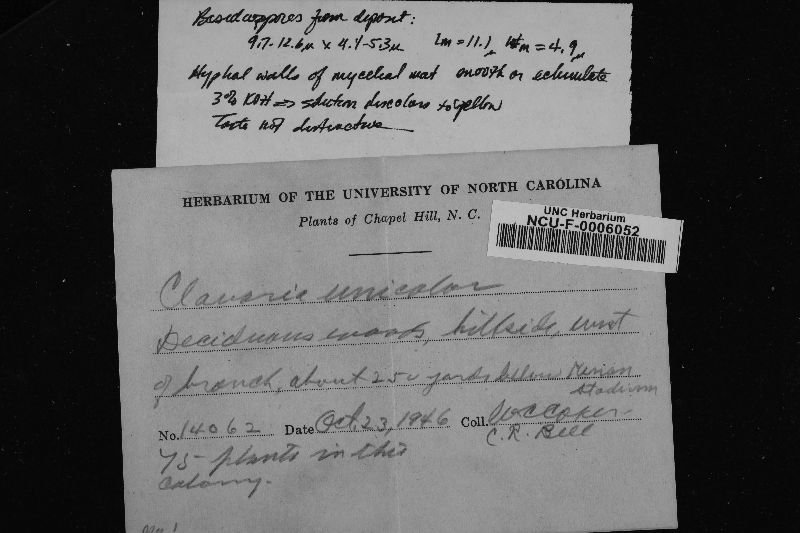 Basidiospores from deposit:
9.7-12.6µ x 4.4-5.3µ lm = 11.1µ wm = 4.9µ
Hyphal walls of mycelial mat smooth or echinulate
3% KOH => solution discolors to yellow
Taste not distinctive
HERBARIUM OF THE UNIVERSITY OF NORTH CAROLINA
Plants of Chapel Hill, N. C.
UNC Herbarium
NCU-F-0006052
Clavaria unicolor
Deciduous woods, hillside, west
of branch, about 250 yards below
Stadium
No. 14062 Date Oct. 23, 1946 Coll. W C Coker
C. R. Bell
75 plants in this
colony.